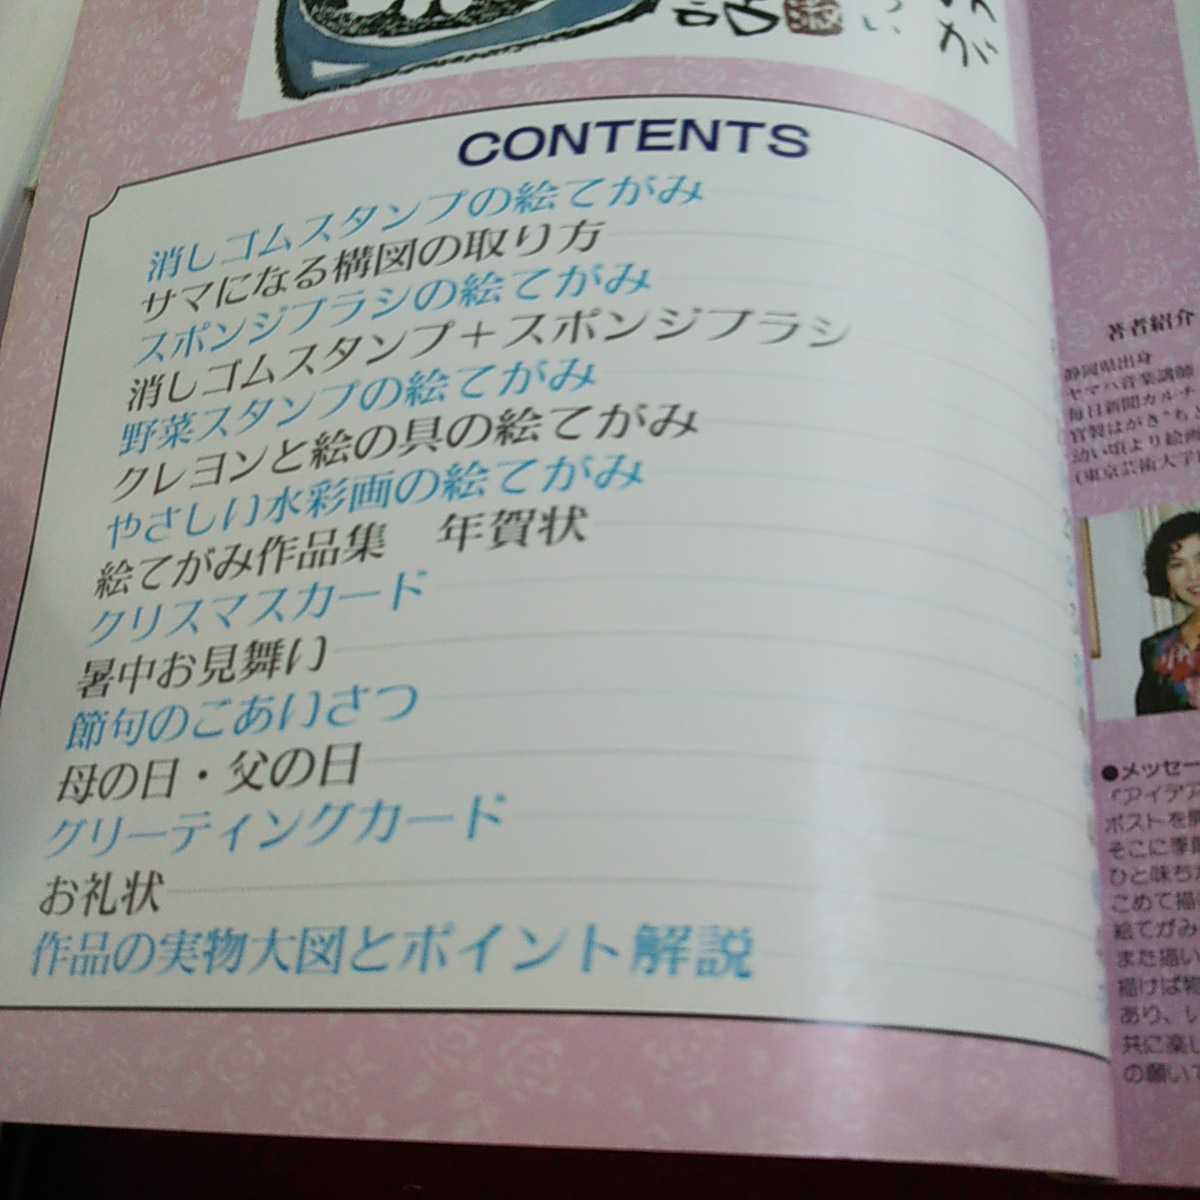 話
CONTENTS
消しゴムスタンプの絵てがみ
サマになる構図の取り方
スポンジブラシの絵てがみ
消しゴムスタンプ+スポンジブラシ
野菜スタンプの絵てがみ
クレヨンと絵の具の絵てがみ
やさしい水彩画の絵てがみ
絵てがみ作品集 年賀状
クリスマスカード
暑中お見舞い
節句のごあいさつ
母の日・父の日
グリーティングカード
お礼状
作品の実物大図とポイント解説
著者紹介
静岡県出身
ヤマハ音楽講師
毎日新聞カルチ
官製はがき“も
幼い頃より絵画
(東京芸術大学
●メッセー
『アイデア
ポストを開
そこに季節
ひと味ちが
こめて描
絵てがみ
また描い
描けば
あり、い
共に楽し
の願いで